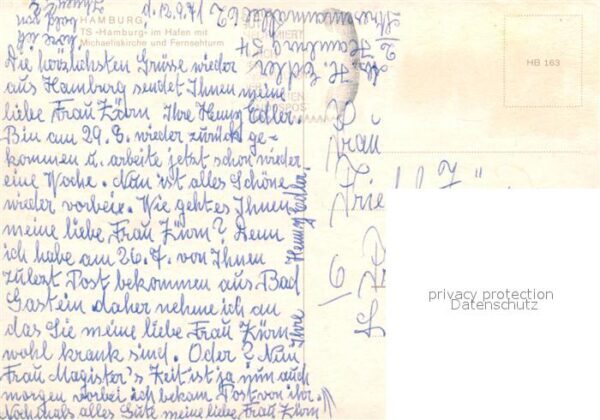 HAMBURG
TS -Hamburg- im Hafen mit
Michaeliskirche und Fernsehturm
d. 12.9.71
Die herzlichsten Grüsse wieder
aus Hamburg sendet Ihnen meine
liebe Frau Zürn Ihre Henny Edler.
Bin am 29. 8. wieder zurück ge-
kommen u. arbeite jetzt schon wieder
eine Woche. Nun ist alles Schöne
wieder vorbei. Wie geht es Ihnen
meine liebe Frau Zürn? Denn
ich habe am 26. 7. von Ihnen
zuletzt Post bekommen aus Bad
Gastein daher nehme ich an
das Sie meine liebe Frau Zürn
wohl krank sind. Oder? Nun
Frau Magister's Zeit ist ja nun auch
morgen vorbei ich bekam Post von ihr.
Nochmals alles Gute meine liebe Frau Zürn
Ihre Henny Edler.
H. Edler
2 Hamburg 54
HB 163
Frau
privacy protection
Datenschutz